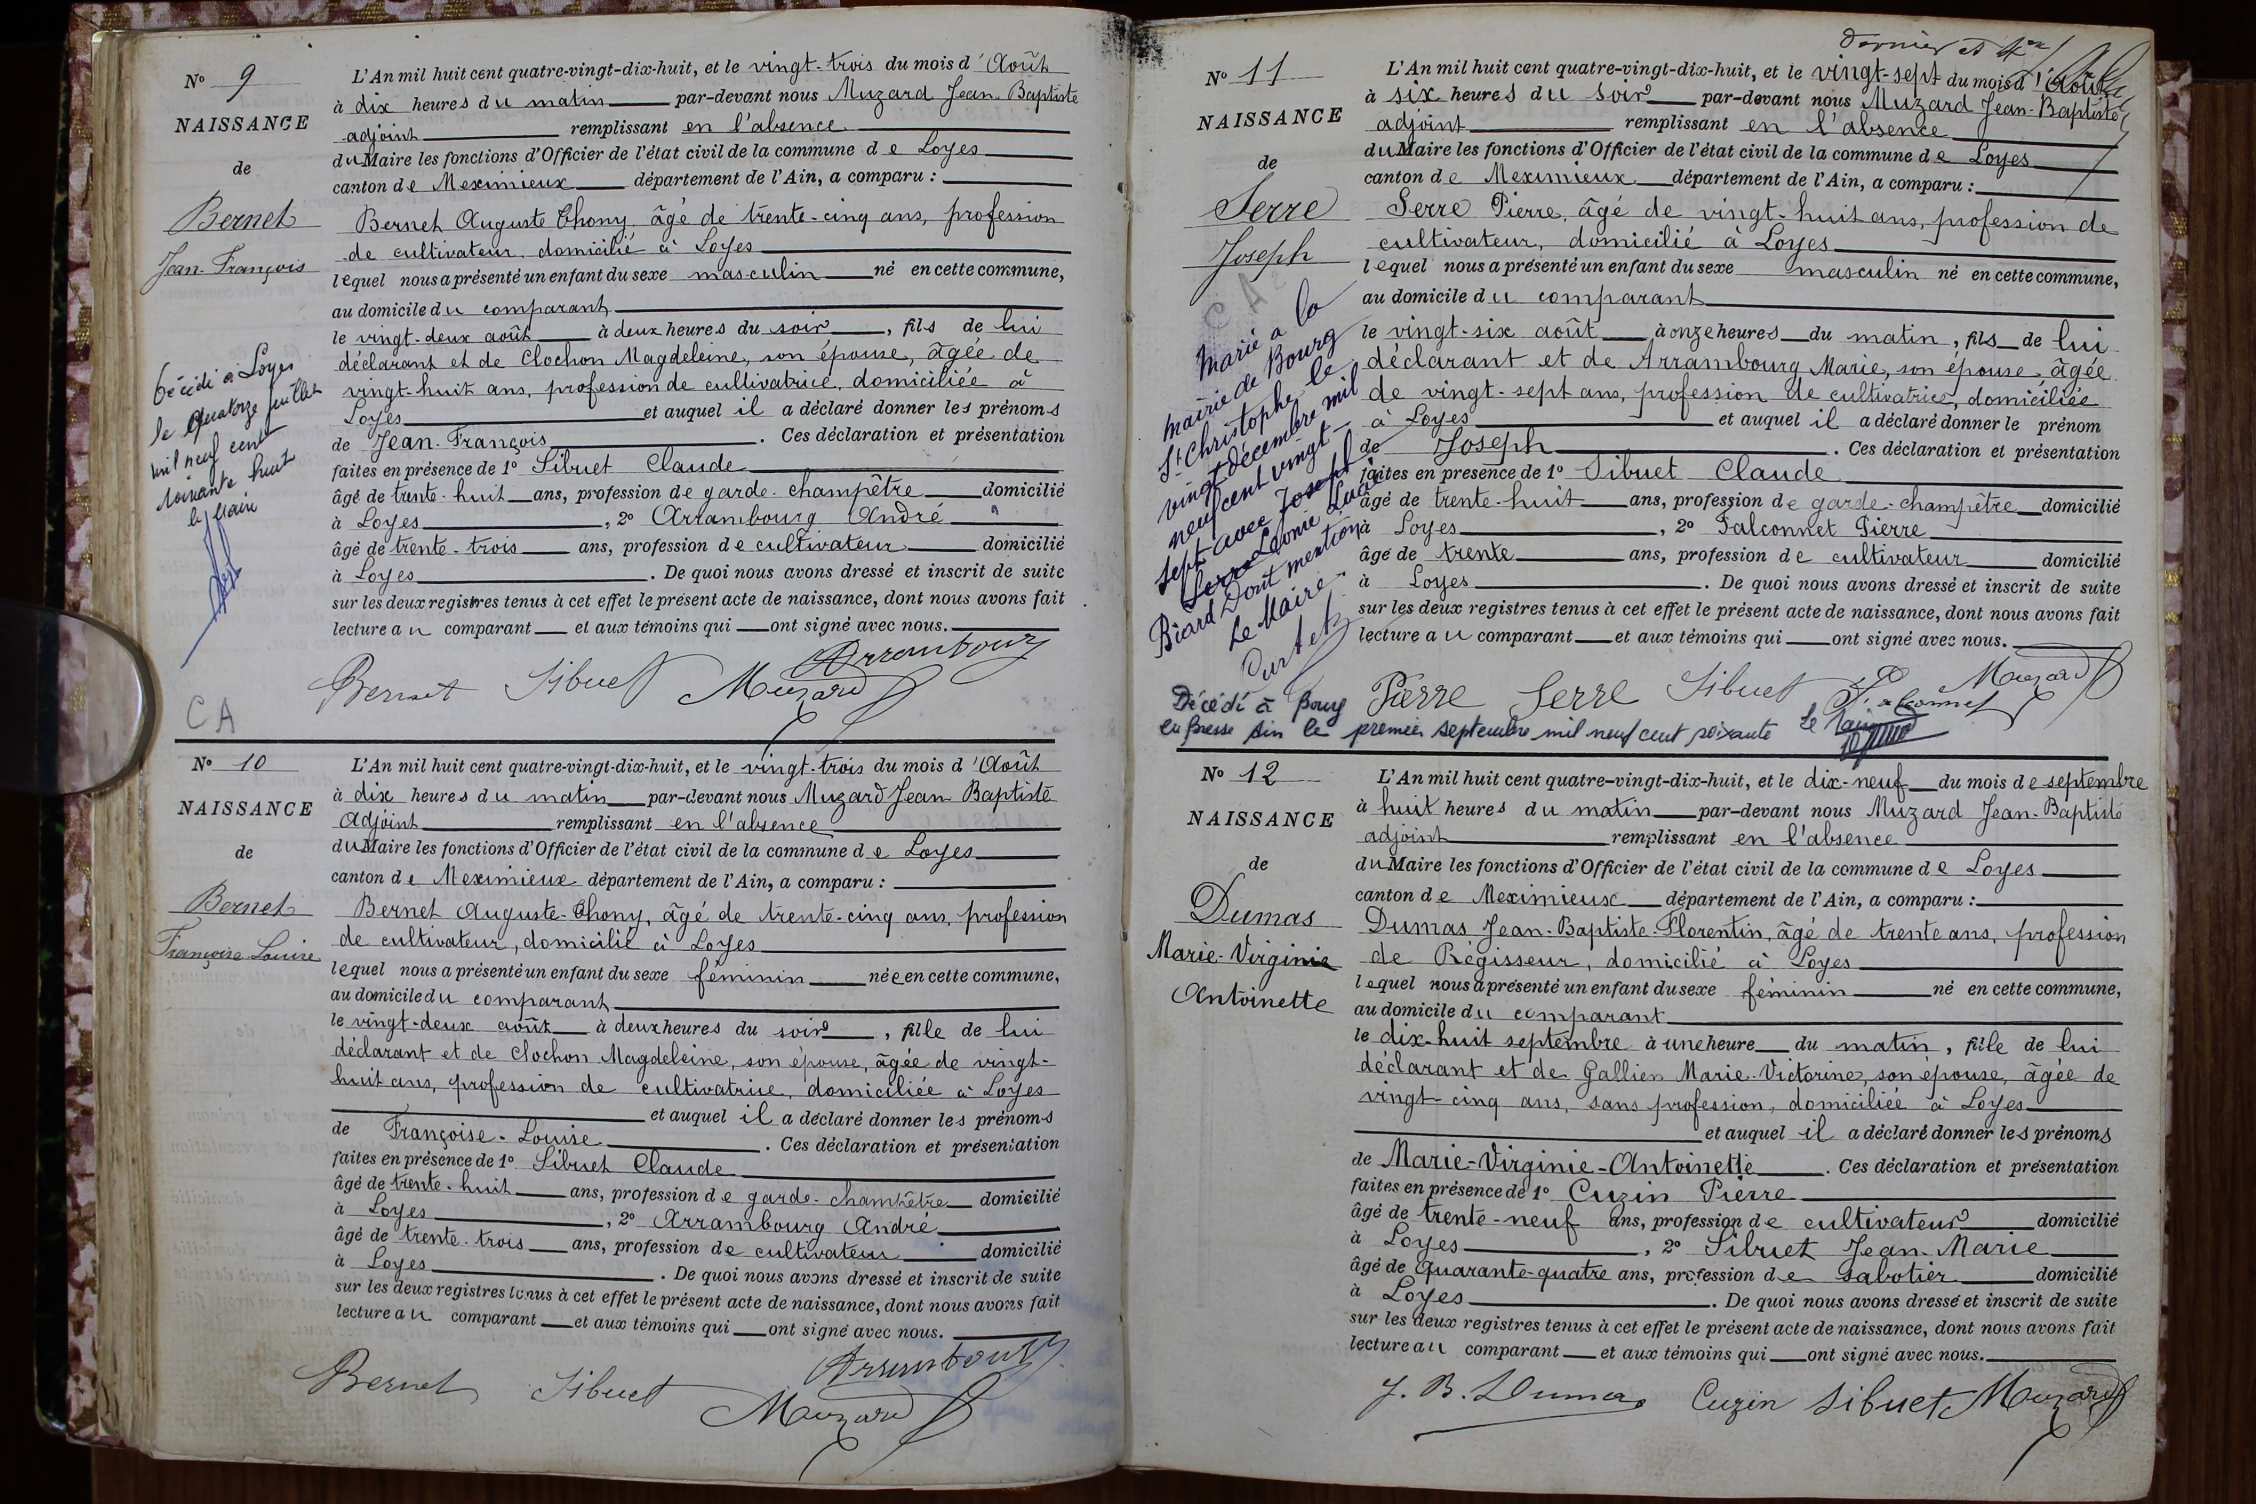 N° 9
NAISSANCE
de
Bernet
Jean-François
Décédé à Loyes
le quatorze juillet
mil neuf cent
soixante huit
le Maire
L'An mil huit cent quatre-vingt-dix-huit, et le vingt-trois du mois d'Août
à dix heures du matin par-devant nous Muzard Jean-Baptiste
adjoint remplissant en l'absence
du Maire les fonctions d'Officier de l'état civil de la commune de Loyes
canton de Meximieux département de l'Ain, a comparu :
Bernet Auguste Thony, âgé de trente-cinq ans, profession
de cultivateur, domicilié à Loyes
lequel nous a présenté un enfant du sexe masculin né en cette commune,
au domicile du comparant
le vingt-deux août à deux heures du soir, fils de lui
déclarant et de Clochon Magdeleine, son épouse, âgée de
vingt-huit ans, profession de cultivatrice, domiciliée à
Loyes et auquel il a déclaré donner les prénoms
de Jean-François. Ces déclaration et présentation
faites en présence de 1° Sibuet Claude
âgé de trente-huit ans, profession de garde-champêtre domicilié
à Loyes, 2° Arrambourg André
âgé de trente-trois ans, profession de cultivateur domicilié
à Loyes. De quoi nous avons dressé et inscrit de suite
sur les deux registres tenus à cet effet le présent acte de naissance, dont nous avons fait
lecture au comparant et aux témoins qui ont signé avec nous.
Arrambourg
Bernet Sibuet Muzard
CA
N° 10
NAISSANCE
de
Bernet
Françoise Louise
L'An mil huit cent quatre-vingt-dix-huit, et le vingt-trois du mois d'Août
à dix heures du matin par-devant nous Muzard Jean-Baptiste
adjoint remplissant en l'absence
du Maire les fonctions d'Officier de l'état civil de la commune de Loyes
canton de Meximieux département de l'Ain, a comparu :
Bernet Auguste-Thony, âgé de trente-cinq ans, profession
de cultivateur, domicilié à Loyes
lequel nous a présenté un enfant du sexe féminin née en cette commune,
au domicile du comparant
le vingt-deux août à deux heures du soir, fille de lui
déclarant et de Clochon Magdeleine, son épouse, âgée de vingt-
huit ans, profession de cultivatrice, domiciliée à Loyes
et auquel il a déclaré donner les prénoms
de Françoise-Louise. Ces déclaration et présentation
faites en présence de 1° Sibuet Claude
âgé de trente-huit ans, profession de garde-champêtre domicilié
à Loyes, 2° Arrambourg André
âgé de trente-trois ans, profession de cultivateur domicilié
à Loyes. De quoi nous avons dressé et inscrit de suite
sur les deux registres tenus à cet effet le présent acte de naissance, dont nous avons fait
lecture au comparant et aux témoins qui ont signé avec nous.
Arrambourg
Bernet Sibuet Muzard
dernier et
N° 11
NAISSANCE
de
Serre
Joseph
CA
Marié à la
mairie de Bourg
St Christophe le
vingt décembre mil
neuf cent vingt-
sept avec Joseph
Serre Léonie Lucie
Biard Dont mention
Le Maire
Curtet
L'An mil huit cent quatre-vingt-dix-huit, et le vingt-sept du mois d'Août
à six heures du soir par-devant nous Muzard Jean-Baptiste
adjoint remplissant en l'absence
du Maire les fonctions d'Officier de l'état civil de la commune de Loyes
canton de Meximieux département de l'Ain, a comparu :
Serre Pierre, âgé de vingt-huit ans, profession de
cultivateur, domicilié à Loyes
lequel nous a présenté un enfant du sexe masculin né en cette commune,
au domicile du comparant
le vingt-six août à onze heures du matin, fils de lui
déclarant et de Arrambourg Marie, son épouse, âgée
de vingt-sept ans, profession de cultivatrice, domiciliée
à Loyes et auquel il a déclaré donner le prénom
de Joseph. Ces déclaration et présentation
faites en présence de 1° Sibuet Claude
âgé de trente-huit ans, profession de garde-champêtre domicilié
à Loyes, 2° Falconnet Pierre
âgé de trente ans, profession de cultivateur domicilié
à Loyes. De quoi nous avons dressé et inscrit de suite
sur les deux registres tenus à cet effet le présent acte de naissance, dont nous avons fait
lecture au comparant et aux témoins qui ont signé avec nous.
Pierre Serre Sibuet Falconnet Muzard
Décédé à Bourg
en Bresse Ain le premier septembre mil neuf cent soixante Le Maire
N° 12
NAISSANCE
de
Dumas
Marie-Virginie
Antoinette
L'An mil huit cent quatre-vingt-dix-huit, et le dix-neuf du mois de septembre
à huit heures du matin par-devant nous Muzard Jean-Baptiste
adjoint remplissant en l'absence
du Maire les fonctions d'Officier de l'état civil de la commune de Loyes
canton de Meximieux département de l'Ain, a comparu :
Dumas Jean-Baptiste-Florentin, âgé de trente ans, profession
de Régisseur, domicilié à Loyes
lequel nous a présenté un enfant du sexe féminin né en cette commune,
au domicile du comparant
le dix-huit septembre à une heure du matin, fille de lui
déclarant et de Gallien Marie-Victorine, son épouse, âgée de
vingt-cinq ans, sans profession, domiciliée à Loyes
et auquel il a déclaré donner les prénoms
de Marie-Virginie-Antoinette. Ces déclaration et présentation
faites en présence de 1° Cuzin Pierre
âgé de trente-neuf ans, profession de cultivateur domicilié
à Loyes, 2° Sibuet Jean-Marie
âgé de quarante-quatre ans, profession de sabotier domicilié
à Loyes. De quoi nous avons dressé et inscrit de suite
sur les deux registres tenus à cet effet le présent acte de naissance, dont nous avons fait
lecture au comparant et aux témoins qui ont signé avec nous.
J. B. Dumas Cuzin Sibuet Muzard